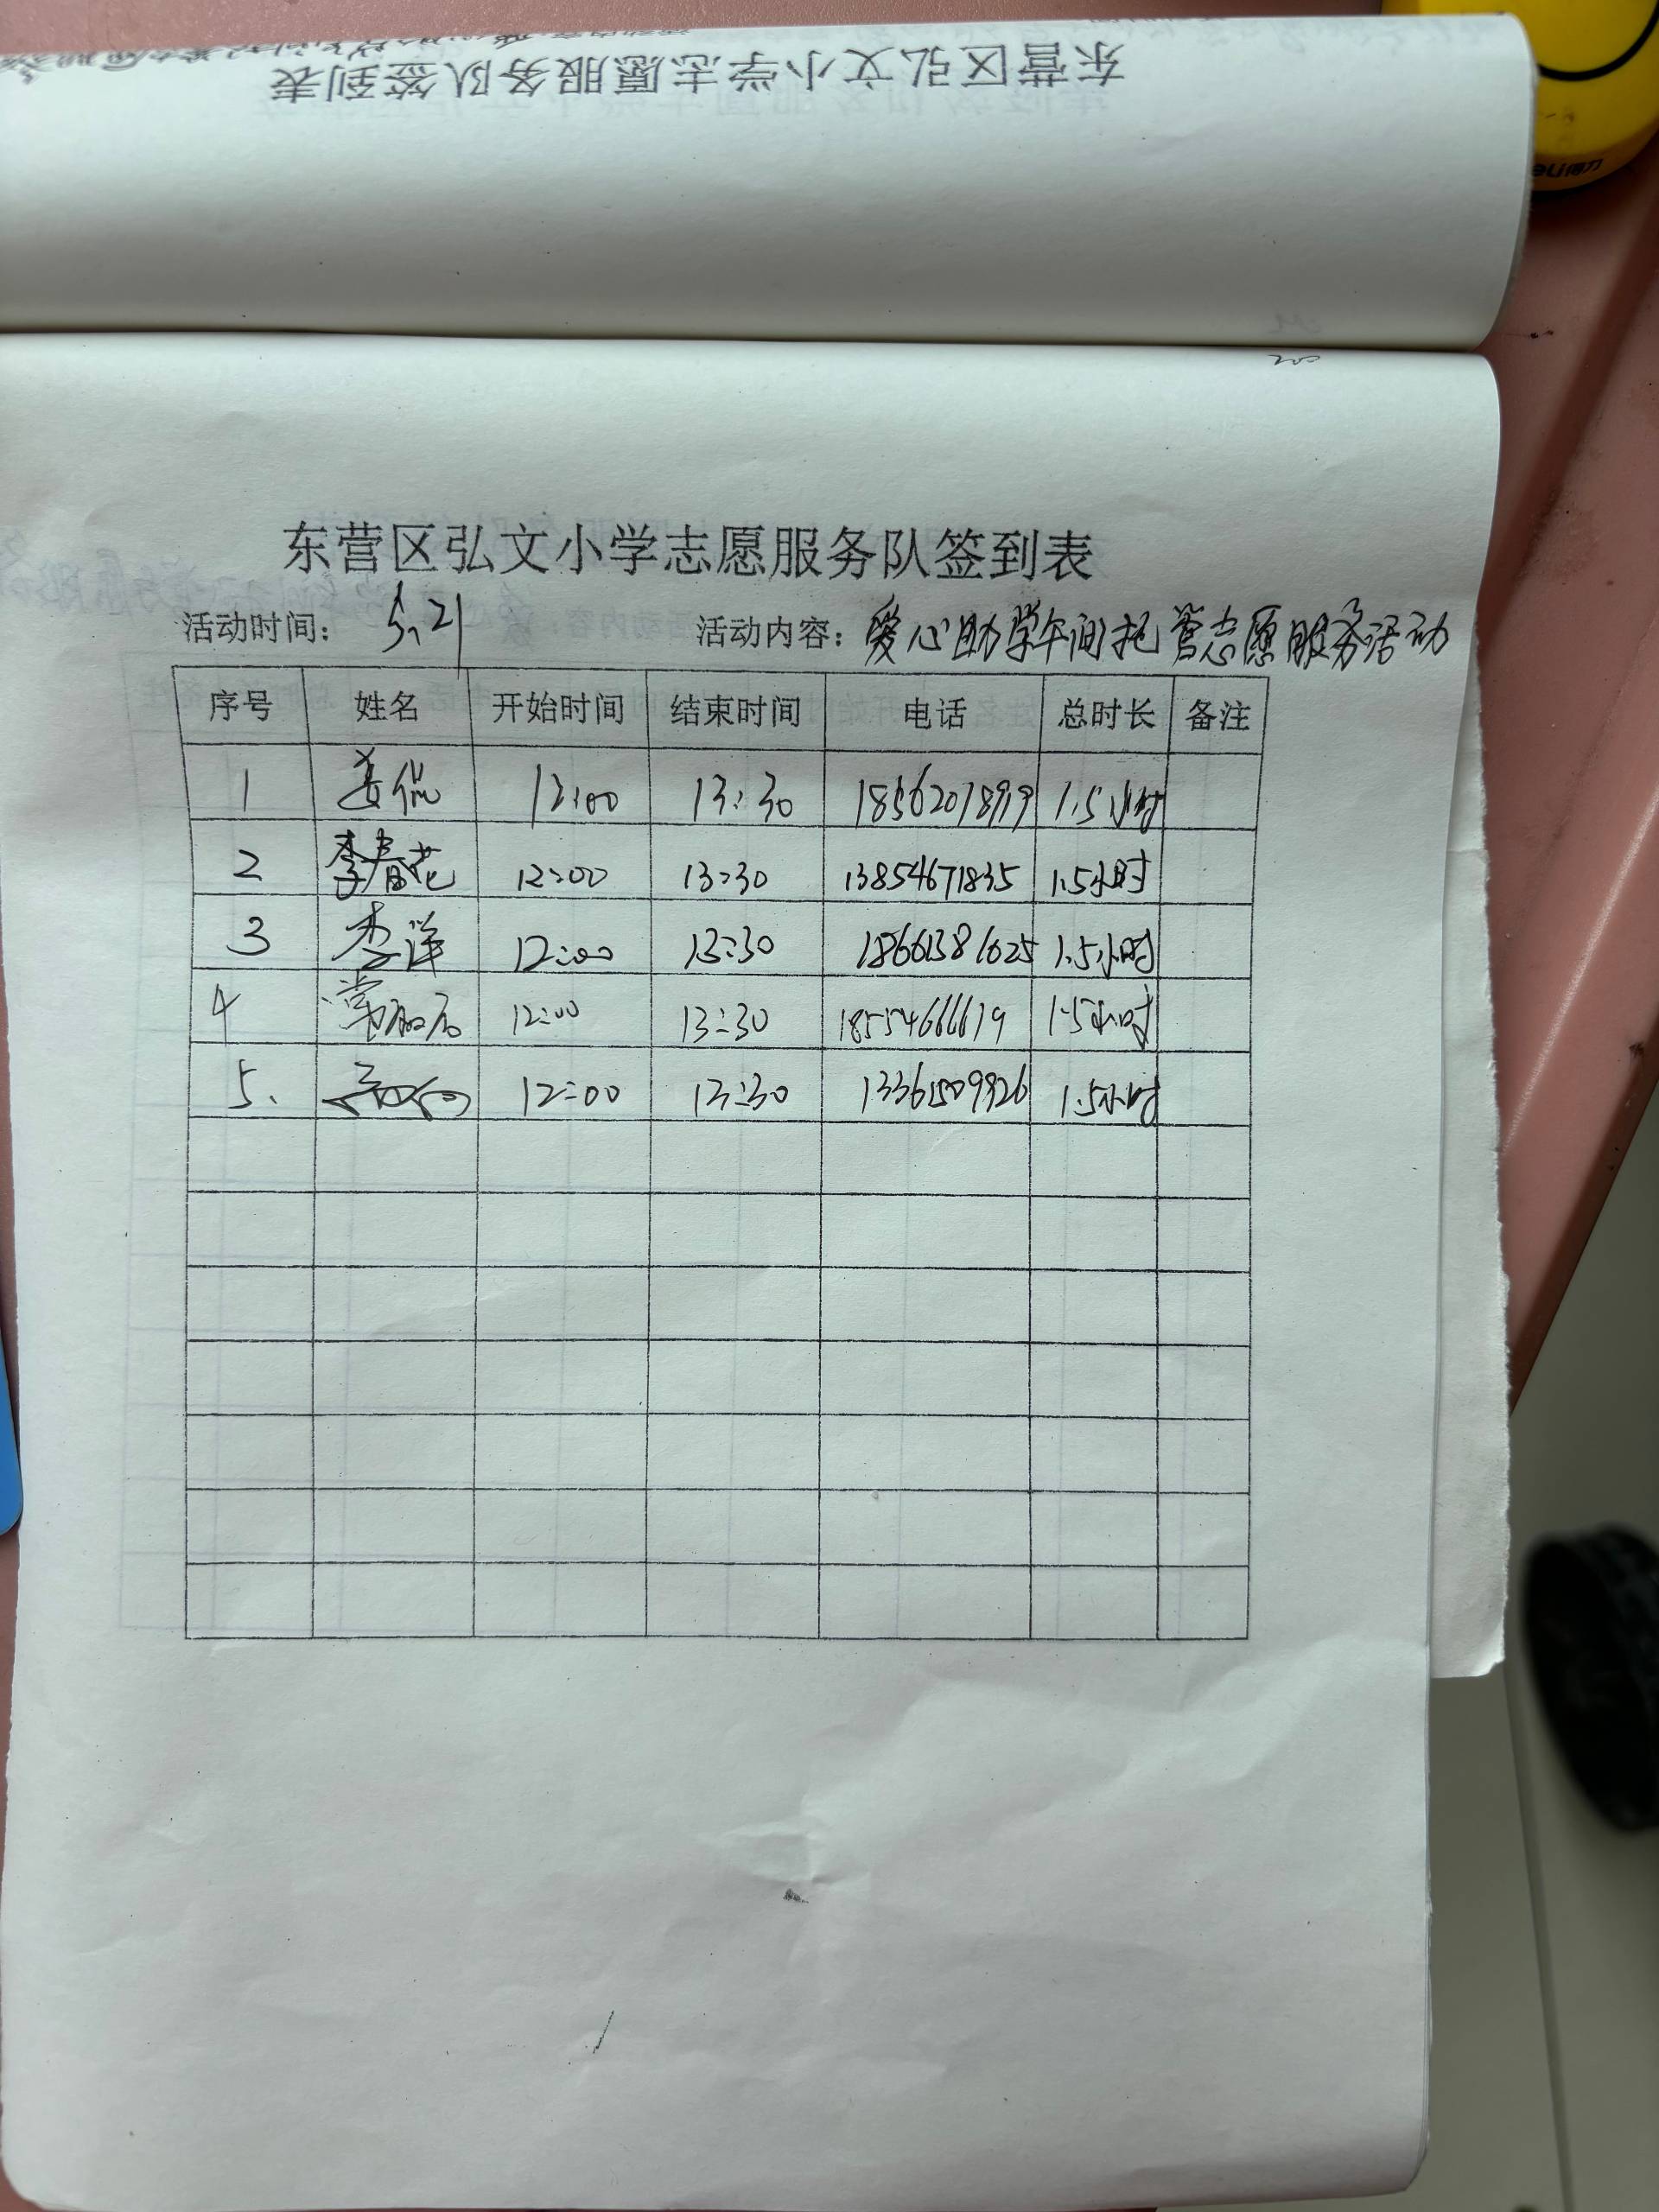 东营区弘文小学志愿服务队签到表
deli得力
东营区弘文小学志愿服务队签到表
活动时间： 5.21 活动内容：爱心助学午间托管志愿服务活动
序号 姓名 开始时间 结束时间 电话 总时长 备注
1 姜侃 12:00 13:30 18562018919 1.5小时
2 李春花 12:00 13:30 13854671835 1.5小时
3 李洋 12:00 13:30 18661381625 1.5小时
4 12:00 13:30 18554666619 1.5小时
5. 12:00 13:30 13361509926 1.5小时